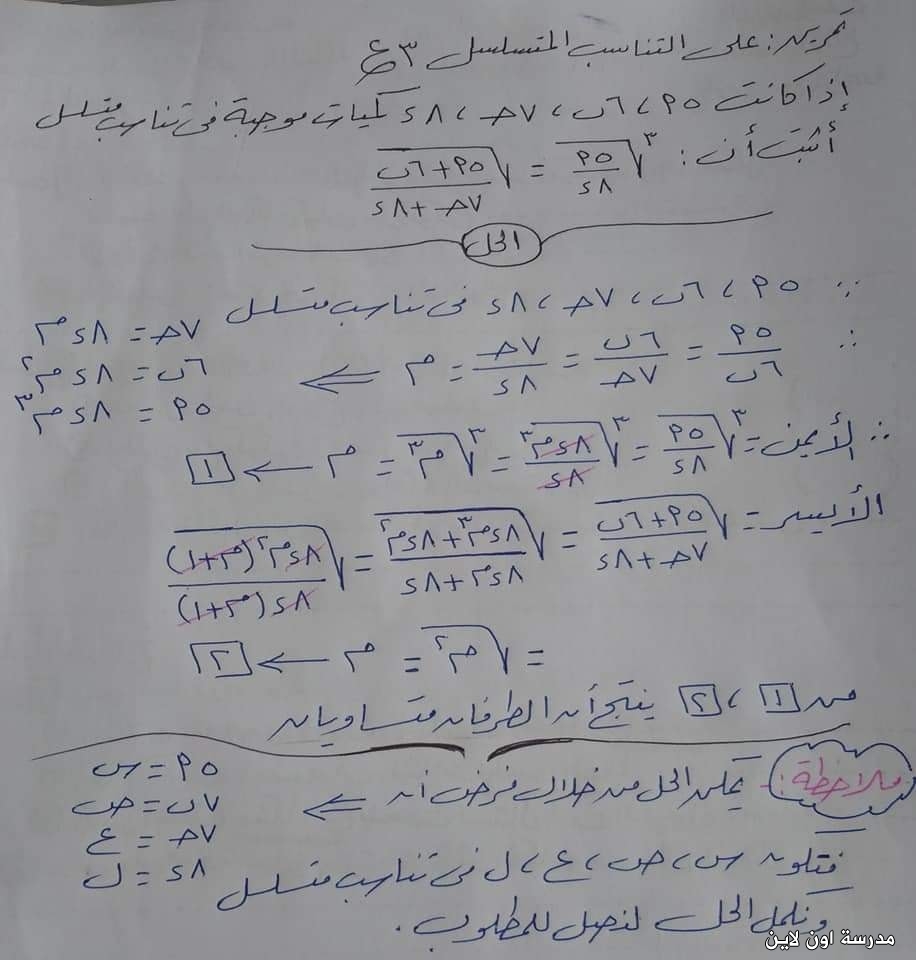 تمرين: على التناسب المتسلسل ٣ع
إذا كانت ٥أ، ٦ب، ٧جـ، ٨د كميات موجبة فى تناسب متسلسل
أثبت أن: ∛(٥أ/٨د) = √((٥أ+٦ب)/(٧جـ+٨د))
الحل
∵ ٥أ، ٦ب، ٧جـ، ٨د فى تناسب متسلسل
∴ ٥أ/٦ب = ٦ب/٧جـ = ٧جـ/٨د = م ⇐
٧جـ = ٨د م
٦ب = ٨د م²
٥أ = ٨د م³
∴ الأيمن = ∛(٥أ/٨د) = ∛(٨د م³/٨د) = ∛(م³) = م ← [١]
الأيسر = √((٥أ+٦ب)/(٧جـ+٨د)) = √((٨د م³+٨د م²)/(٨د م+٨د)) = √(٨د م²(م+١)/٨د(م+١))
= √(م²) = م ← [٢]
من [١]، [٢] ينتج أن الطرفان متساويان
ملاحظة:- يمكن الحل من خلال فرض أن ⇐
٥أ = س
٧ب = ص
٧جـ = ع
٨د = ل
فتكون س، ص، ع، ل فى تناسب متسلسل
ونكمل الحل لنصل للمطلوب.
مدرسة اون لاين